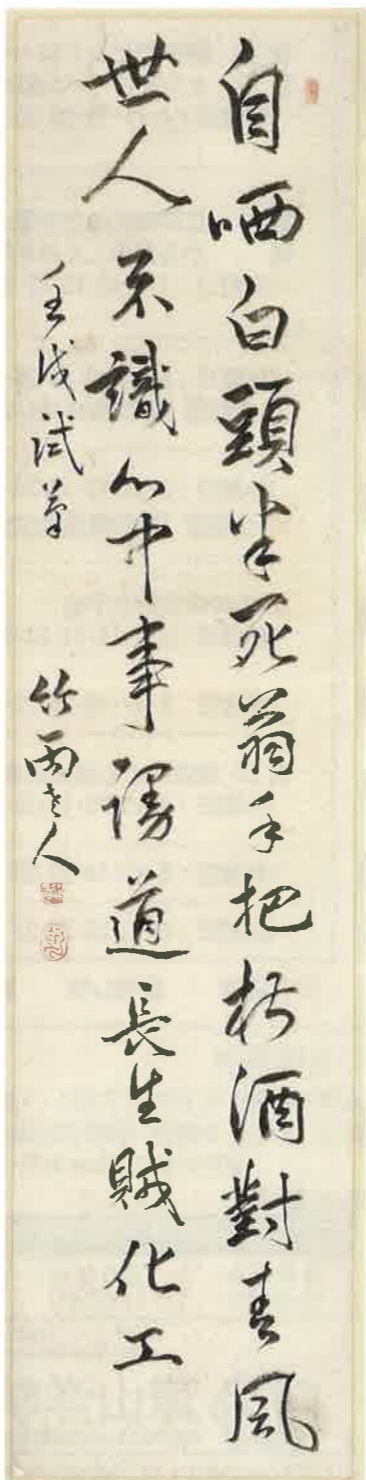 自哂白頭半死翁手把杯酒對春風
世人不識心中事謾道長生賊化工
壬戌試筆
竹雨老人